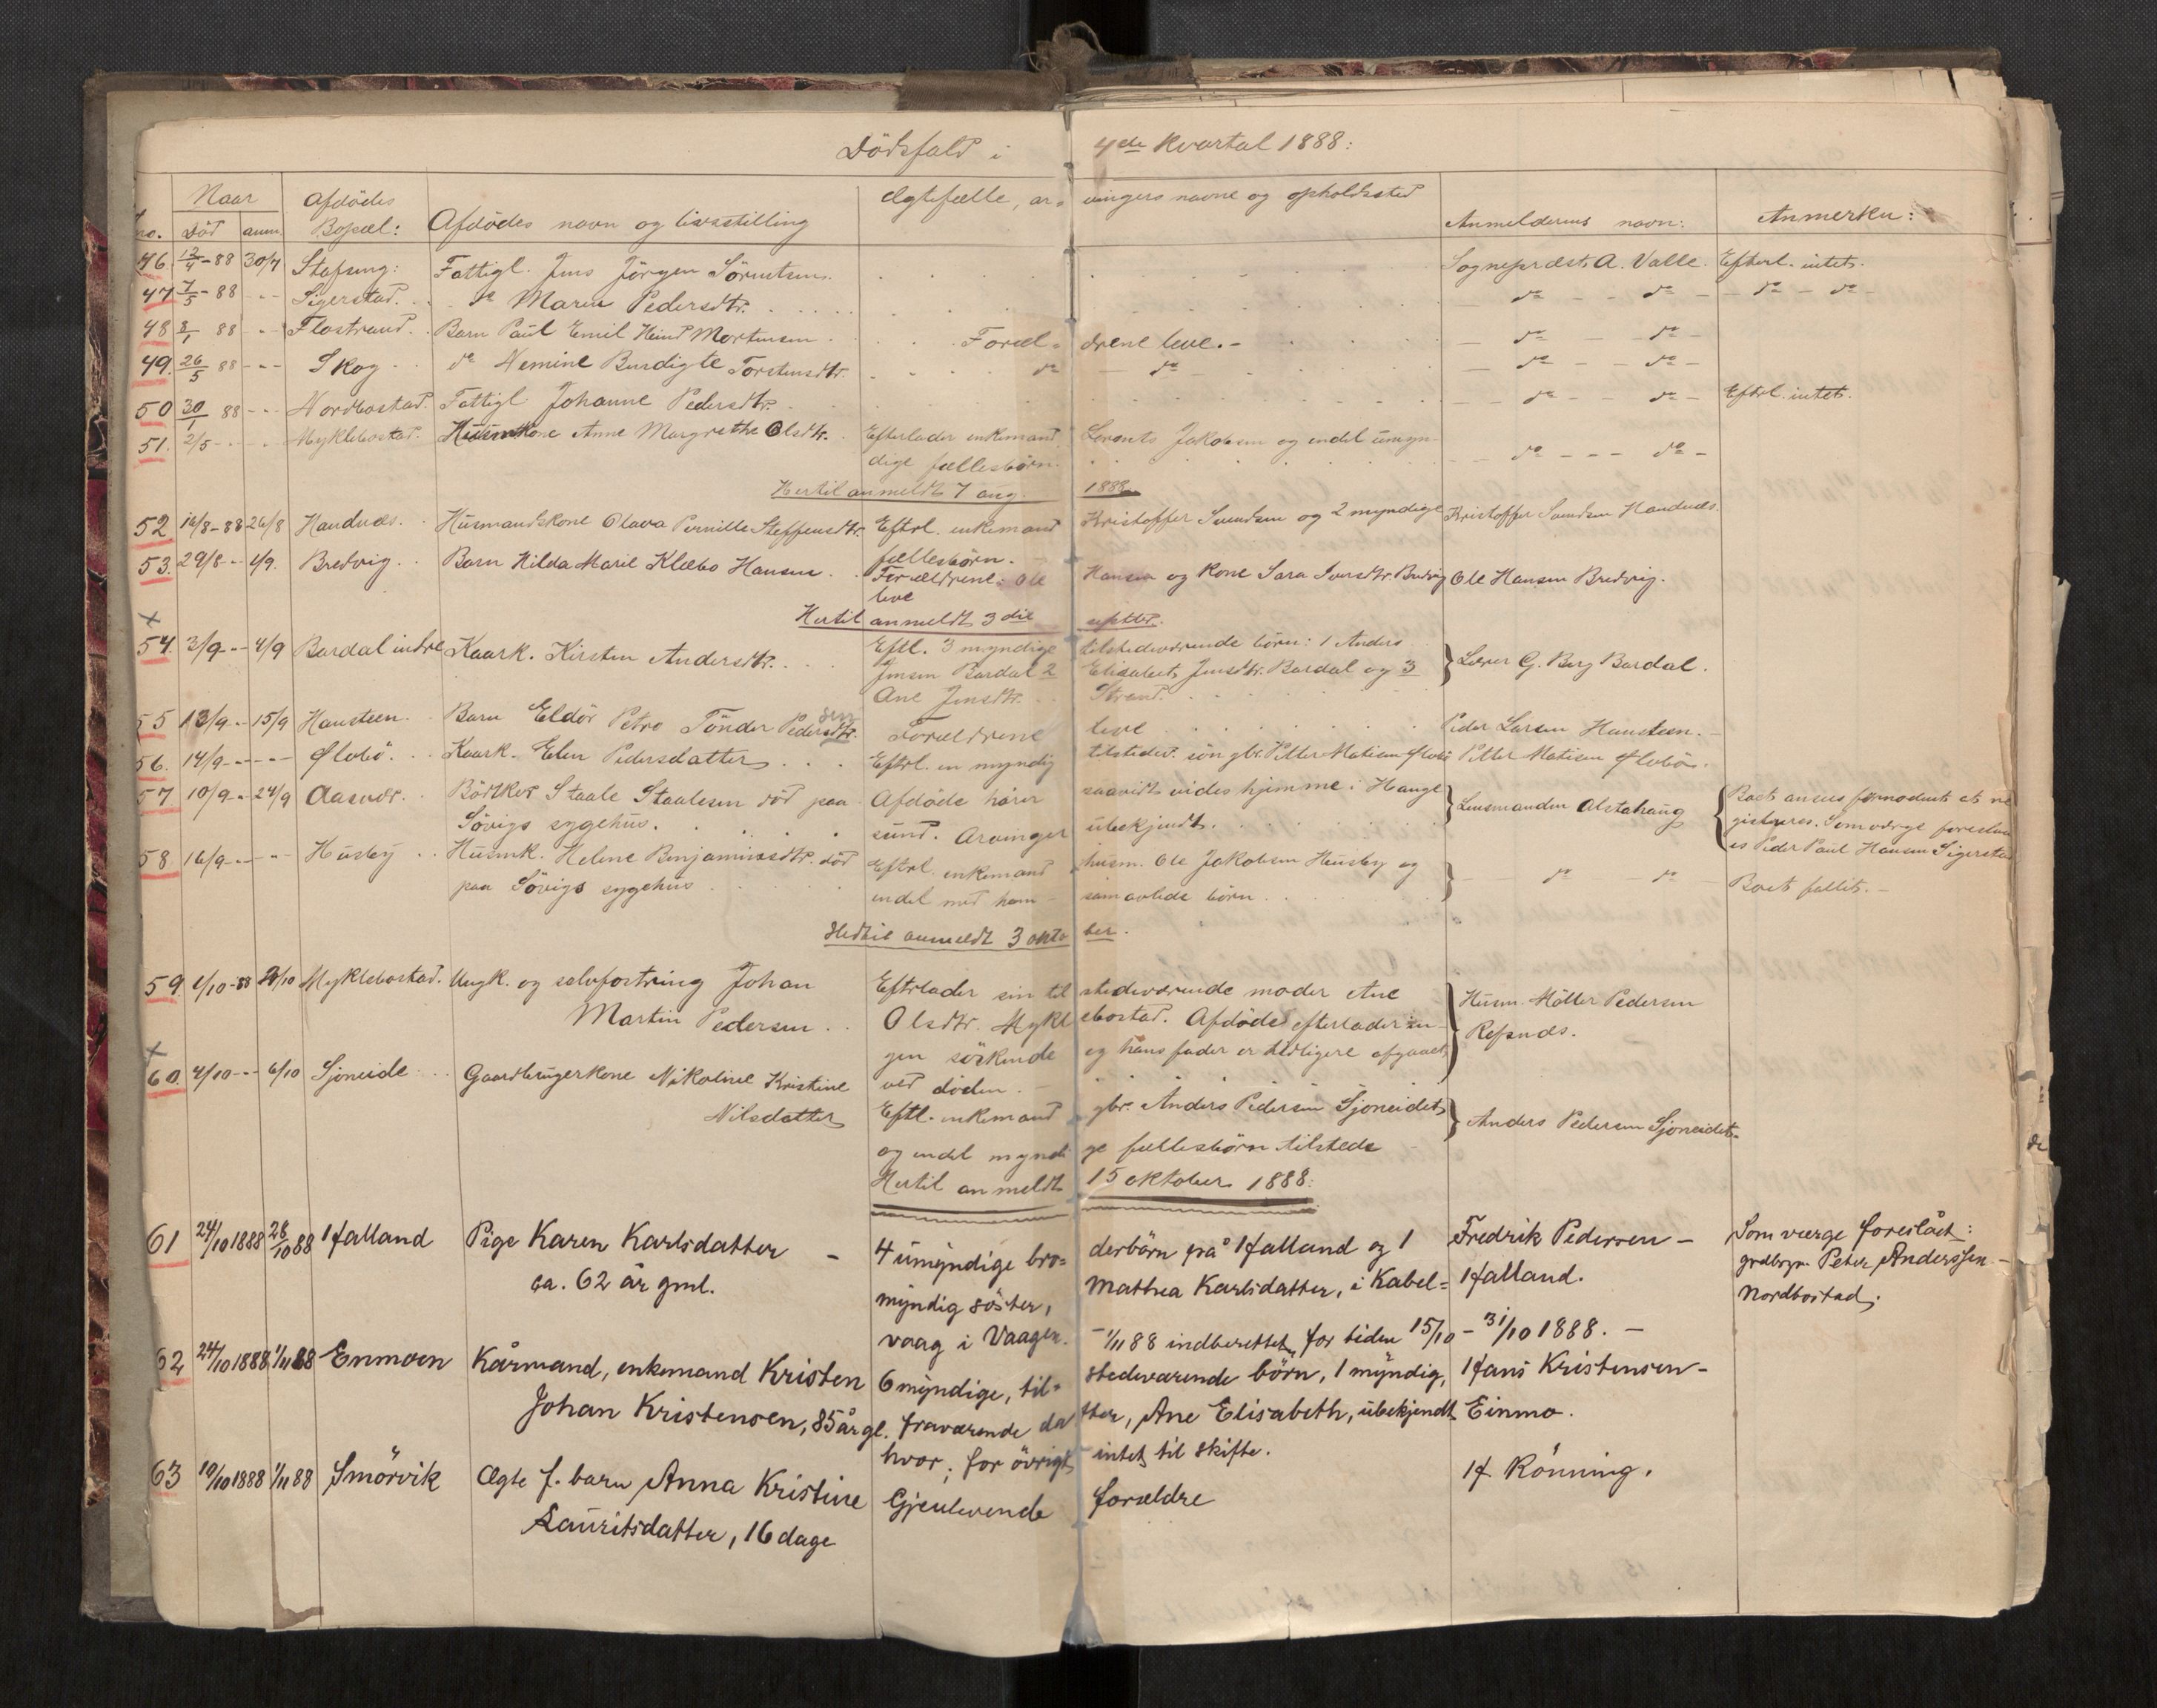 Dödsfald i 4de Kvartal 1888:
no. Naar Död anm. Afdödes Bopæl: Afdödes navn og livsstilling Ægtefælle, arvingers navne og opholdssted Anmelderens navn: Anmerkn:
46. 12/4-88 30/7 Stafseng: Fattigl. Jens Jörgen Sörentsen. Sogneprest A. Valle. Efterl. intet.
47 7/5-88 - - Sigerstad. do Maren Pedersdtr. - do - - do - - do - do -
48 8/1 88 - - Flostrand. Barn Paul Emil Heind Mortensen. Foræl= drene leve. - - do - - do -
49. 26/5 88 - - Skog do Nemine Burdigte Torstensdtr. do - do - - do - - do -
50 30/1 88 - - Nordbostad. Fattigl. Johanne Pedersdtr. - - do - - do - Eftrl. intet.
51. 2/5 - - Myklebostad. Husmkone Anne Margrethe Olsdtr. Efterlader enkemand Lorents Jakobsen og endel umyn-
dige fællesbörn. - - do - - - do -
Hertil anmeldt 7 aug. 1888.
52 16/8-88 26/8 Handnæs. Husmandskone Olava Pernille Steffensdtr. Eftrl. enkemand Kristoffer Svendsen og 2 myndige Kristoffer Svendsen Handnæs.
fællesbörn. -
53. 29/8 - - 1/9. Bredvig. Barn Hilda Marie Klæbo Hansen. Forældrene: Ole Hansen og Kone Sara Iversdtr. Bredvig Ole Hansen Bredvig.
leve
Hertil anmeldt 3 die septbr.
54. 3/9 - - 4/9 Bardal indre Kaark. Kirsten Andersdtr. Eftl. 3 myndige tilstedeværende börn: 1 Anders
Jensen Bardal 2 Elisabet Jensdtr. Bardal og 3 Lærer G. Berg Bardal.
Ane Jensdtr. Strand.
55 13/9 - - 15/9 Hausteen. Barn Eldör Petro Tönder Pedersdtr. sen Forældrene leve Peder Larsen Hausteen. -
56. 14/9 - - - - Flobö. Kaark. Elen Pedersdatter Eftrl. en myndig tilstedev. sön gbr. Petter Matisen Flobö Petter Matisen Flobö.
57 10/9 - - 24/9 Aasvær. Bödker Staale Staalesen död paa Afdöde hörer saavidt vides hjemme i Hauge
Sövigs sygehus. sund. Arvinger ubekjendt. Lensmanden Alstahaug Boet ansees förnödent at re
gistreres. Som værge foreslaa
es Peder Paul Hansen Sigerstad
58. 16/9 - - - - Husby Husmk. Helene Benjaminsdtr. död Eftrl. enkemand husm. Ole Jakobsen Husby og
paa Sövigs sygehus endel med ham samavlede börn - - do - do - Boet fallit. -
Hertil anmeldt 3 okto ber.
59. 1/10-88 /10 Myklebostad. Ungk. og selvfostring Johan Eftrlader sin til stedeværende moder Ane
Martin Pedersen. Olsdtr. Mykl ebostad. Afdöde efterlader in- Husm. Möller Pedersen
gen söskende og hans fader er tidligere afgaaet Refsnæs.
ved döden. -
60. 4/10 - - 6/10 Sjoneide Gaardbrugerkone Nikoline Kristine
Nilsdatter Eftl. enkemand gbr. Anders Pedersen Sjoneidet Anders Pedersen Sjoneidet.
og endel myndi ge fællesbörn tilstede
Hertil anmeldt 15 oktober 1888:
61 24/10 1888 28/10 88 Halland Pige Karen Karlsdatter - 4 umyndige bro= derbörn på Halland og 1 Fredrik Pedersen - Som værge foreslået:
ca. 62 år gml. myndig söster, Mathea Karlsdatter, i Kabel= Halland. grdbrgr. Peter Anderssen -
vaag i Vaagen. Nordbostad.
- 1/11 88 indberettet for tiden 15/10 - 31/10 1888. -
62 24/10 1888 1/11 88 Enmoen Kårmand, enkemand Kristen 6 myndige, til= stedeværende börn, 1 myndig, Hans Kristensen -
Johan Kristensen, 85 år gl. fraværende da tter, Ane Elisabeth, ubekjendt Einmo.
hvor; for övrigt intet til skifte.
63 10/10 1888 1/11 88 Smörvik Ægte f. barn Anna Kristine Gjenlevende forældre H. Rönning.
Lauritsdatter, 16 dage